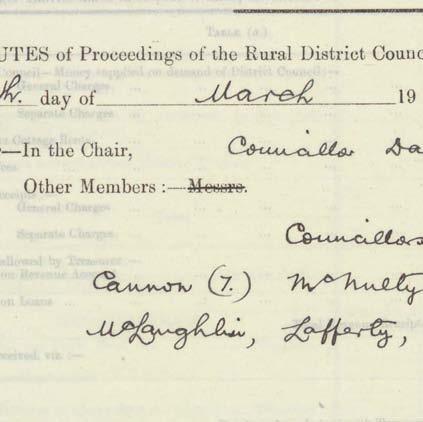 UTES of Proceedings of the Rural District Counc
th. day of March 19
—In the Chair, Councillor Da
Other Members :— Messrs.
Councillors
Cannon (7.) McNulty
McLaughlin, Lafferty,